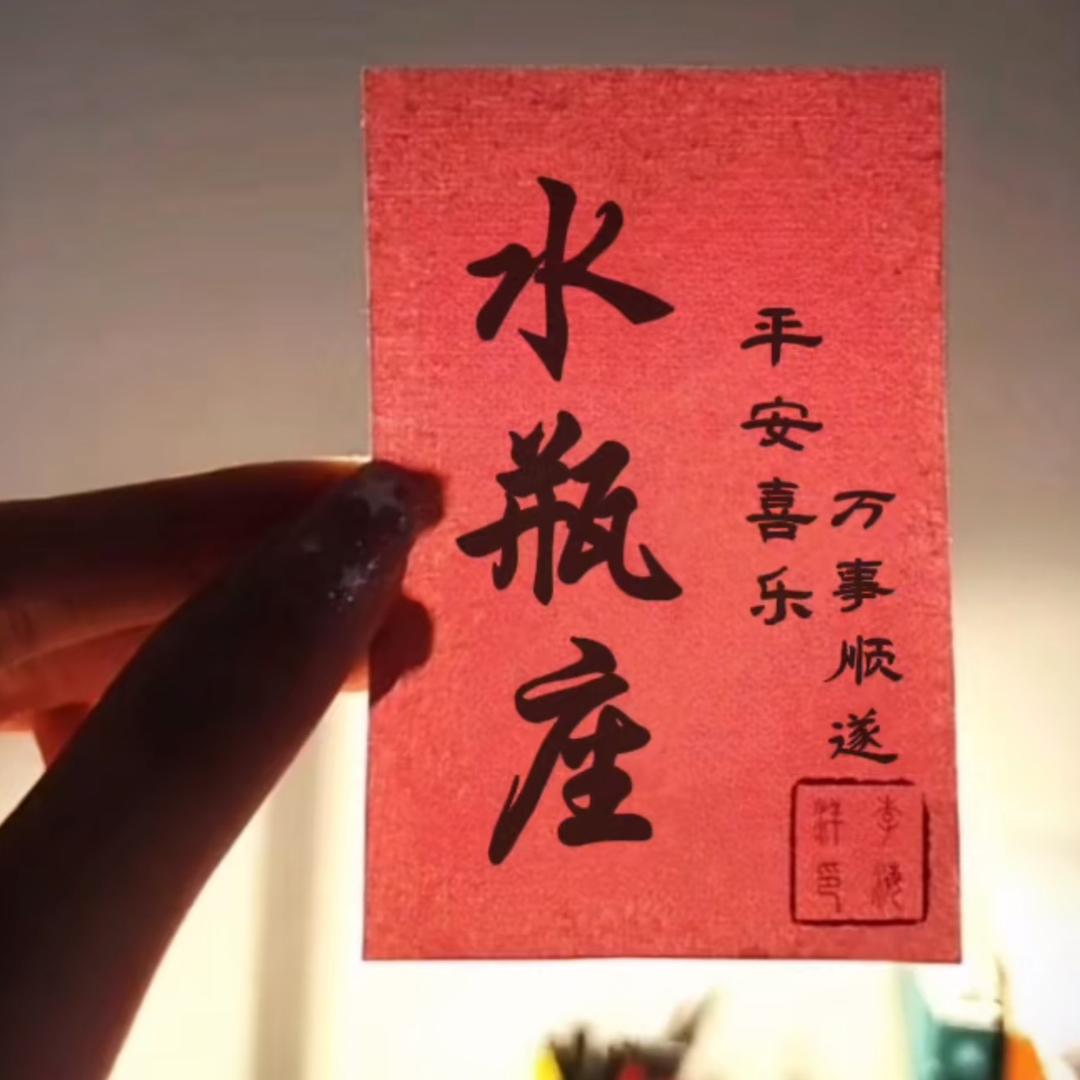 水瓶座
平安喜乐
万事顺遂